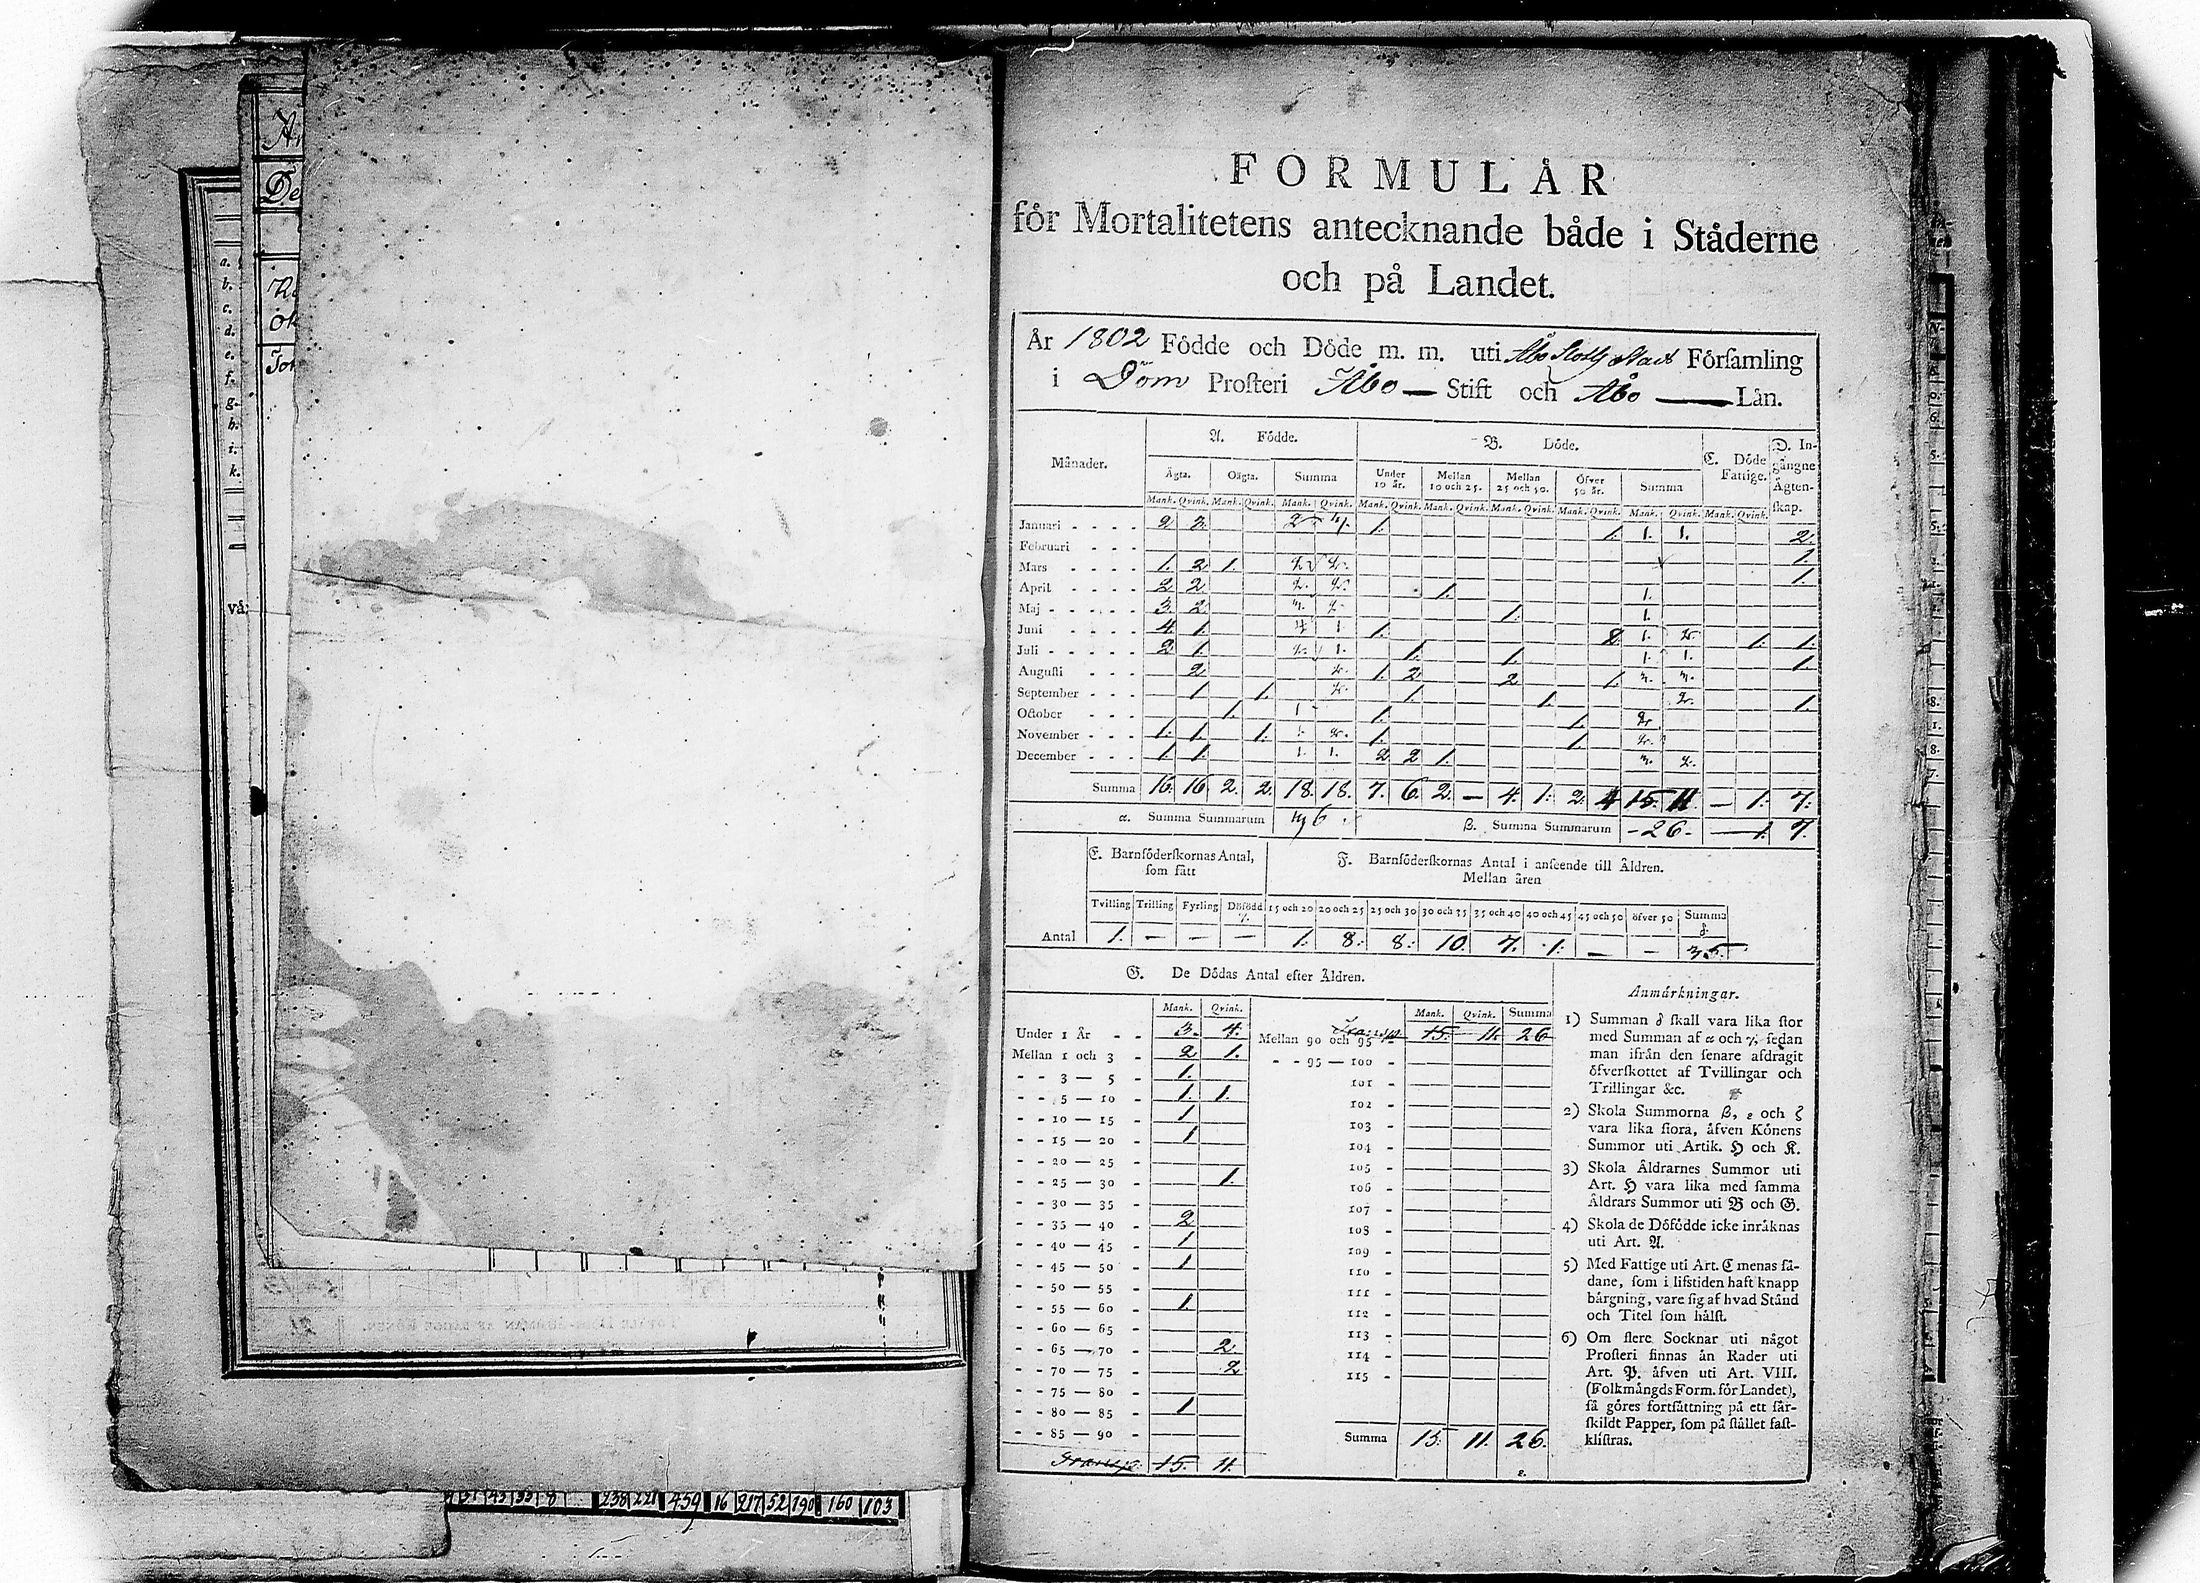 FORMULÅR
för Mortalitetens antecknande både i Ståderne
och på Landet.
År 1802 Födde och Döde m. m. uti Åbo Slotts Stads Församling
i Dom Prosteri Åbo — Stift och Åbo — Län.
Månader.
A. Födde.
B. Döde.
C. Döde Fattige.
D. Ingångne Ägtenskap.
Ägta. Oägta. Summa Under 10 år. Mellan 10 och 25. Mellan 25 och 50. Öfver 50 år. Summa
Mank. Qvink. Mank. Qvink. Mank. Qvink. Mank. Qvink. Mank. Qvink. Mank. Qvink. Mank. Qvink. Mank. Qvink. Mank. Qvink.
Januari 2 3 2 4 1. 1. 1. 1. 2.
Februari 1.
Mars 1. 2 1. 2 2. 1.
April 2 2 2. 2. 1. 1.
Maj 3. 2 3. 2. 1. 1.
Juni 4. 1. 4 1 1. 2. 1. 2. 1. 1.
Juli 2 1. 2. 1. 1. 1. 1. 1. 1.
Augusti 2 2. 1. 2 2 1. 3. 3.
September 1. 1. 2. 1. 1. 2. 1.
October 1. 1 1. 1. 2.
November 1. 1. 1. 1. 2. 1. 1. 2.
December 1. 1. 1. 1. 2 2 1. 3. 2.
Summa 16. 16 2. 2. 18. 18. 7. 6. 2. — 4. 1. 2. 4 15. 11 — 1. 7.
α. Summa Summarum 36. β. Summa Summarum -26- — 1. 7.
E. Barnföderskornas Antal, som fått
F. Barnföderskornas Antal i anseende till Åldren.
Mellan åren
Tvilling Trilling Fyrling Döfödd γ. 15 och 20 20 och 25 25 och 30 30 och 35 35 och 40 40 och 45 45 och 50 öfver 50 Summa δ
Antal 1. — — — 1. 8. 8. 10. 7. 1. — — 35.
G. De Dödas Antal efter Åldren.
Mank. Qvink. Mank. Qvink. Summa
Under 1 År - - 3. 4.
Mellan 1 och 3 - 2 1.
- - 3 — 5 - 1.
- - 5 — 10 - 1. 1.
- - 10 — 15 - 1
- - 15 — 20 - 1
- - 20 — 25 -
- - 25 — 30 - 1.
- - 30 — 35 -
- - 35 — 40 - 2
- - 40 — 45 - 1
- - 45 — 50 - 1
- - 50 — 55 -
- - 55 — 60 - 1.
- - 60 — 65 -
- - 65 — 70 - 2
- - 70 — 75 - 2
- - 75 — 80 -
- - 80 — 85 - 1
- - 85 — 90 -
Transp. 15. 11.
Transp. 15. 11. 26
Mellan 90 och 95 -
- - 95 — 100 -
101 -
102 -
103 -
104 -
105 -
106 -
107 -
108 -
109 -
110 -
111 -
112 -
113 -
114 -
115 -
Summa 15. 11. 26.
ε.
Anmärkningar.
1) Summan δ skall vara lika stor
med Summan af α och γ, sedan
man ifrån den senare afdragit
öfverskottet af Tvillingar och
Trillingar &c.
2) Skola Summorna β, ε och ζ
vara lika stora, åfven Könens
Summor uti Artik. H och K.
3) Skola Åldrarnes Summor uti
Art. H vara lika med samma
Åldrars Summor uti B och G.
4) Skola de Döfödde icke inråknas
uti Art. A.
5) Med Fattige uti Art. C menas så-
dane, som i lifstiden haft knapp
bårgning, vare sig af hvad Stånd
och Titel som hälst.
6) Om flere Socknar uti något
Prosteri finnas ån Rader uti
Art. P. åfven uti Art. VIII.
(Folkmångds Form. för Landet),
så göres fortsåttning på ett sår-
skildt Papper, som på stållet fast-
klistras.
a.
b.
c.
d.
e.
f.
g.
h.
i.
k.
43 33 8 238 221 459 16 217 52 190 160 103